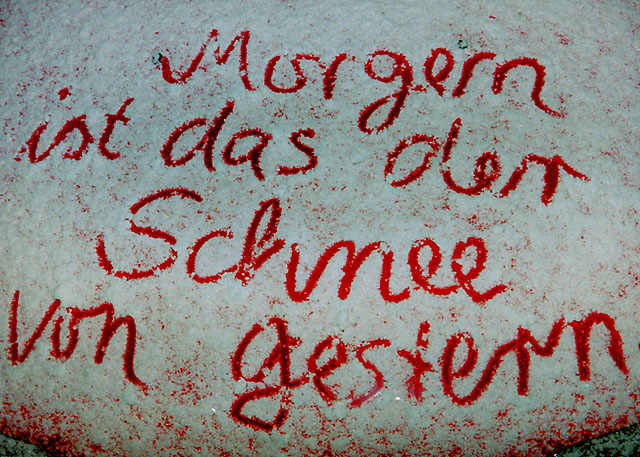 Morgern
ist das der
Schnee
von gestern